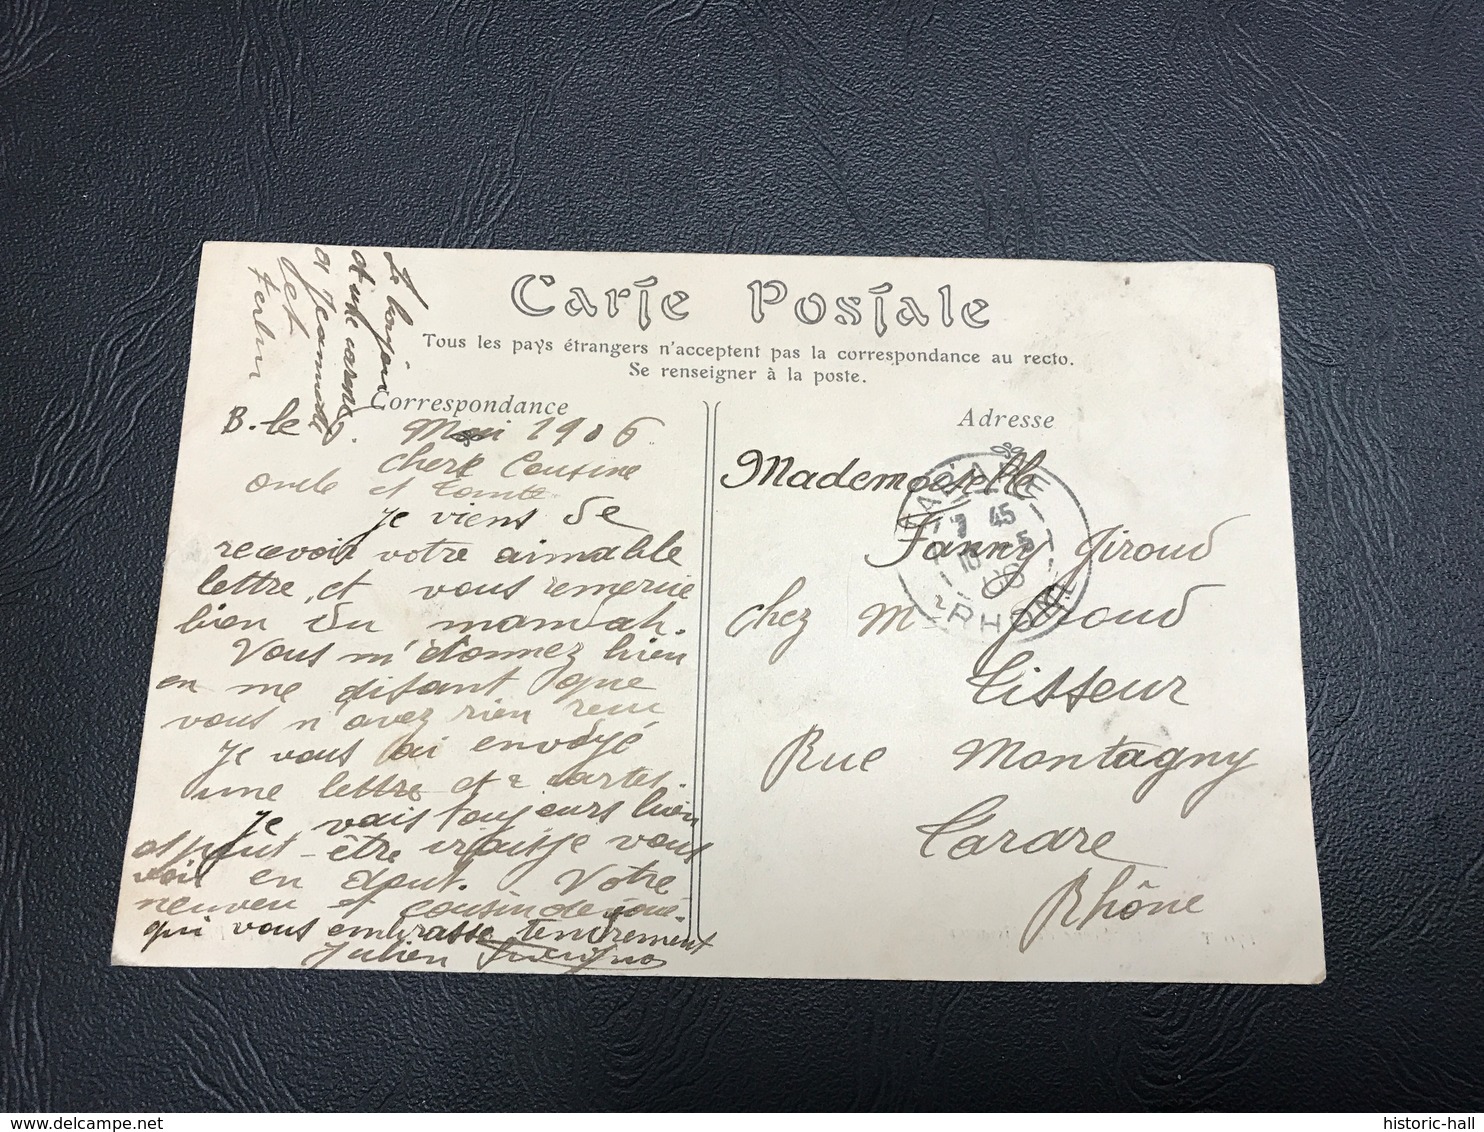 Carte Postale
Tous les pays étrangers n'acceptent pas la correspondance au recto.
Se renseigner à la poste.
Correspondance
Adresse
Le bonjour
a Jeannette
B. le Mai 1906
chere Cousine
oncle et tante
Je viens de
recevoir votre aimable
lettre, et vous remercie
bien du
Vous m'étonnez bien
en me disant que
vous n'avez rien recu
Je vous ai envoyé
une lettre et 2 cartes.
Je vais toujours bien
et peut-être irais je vous
voir en aout. Votre
neuveu et cousin
qui vous embrasse tendrement
Julien
Mademoiselle
Fanny Giroud
chez Mr Giroud
Tisseur
Rue Montagny
Tarare
Rhône
TARARE
7 45
10 5
06
RHONE
delcampe.net
historic-hall